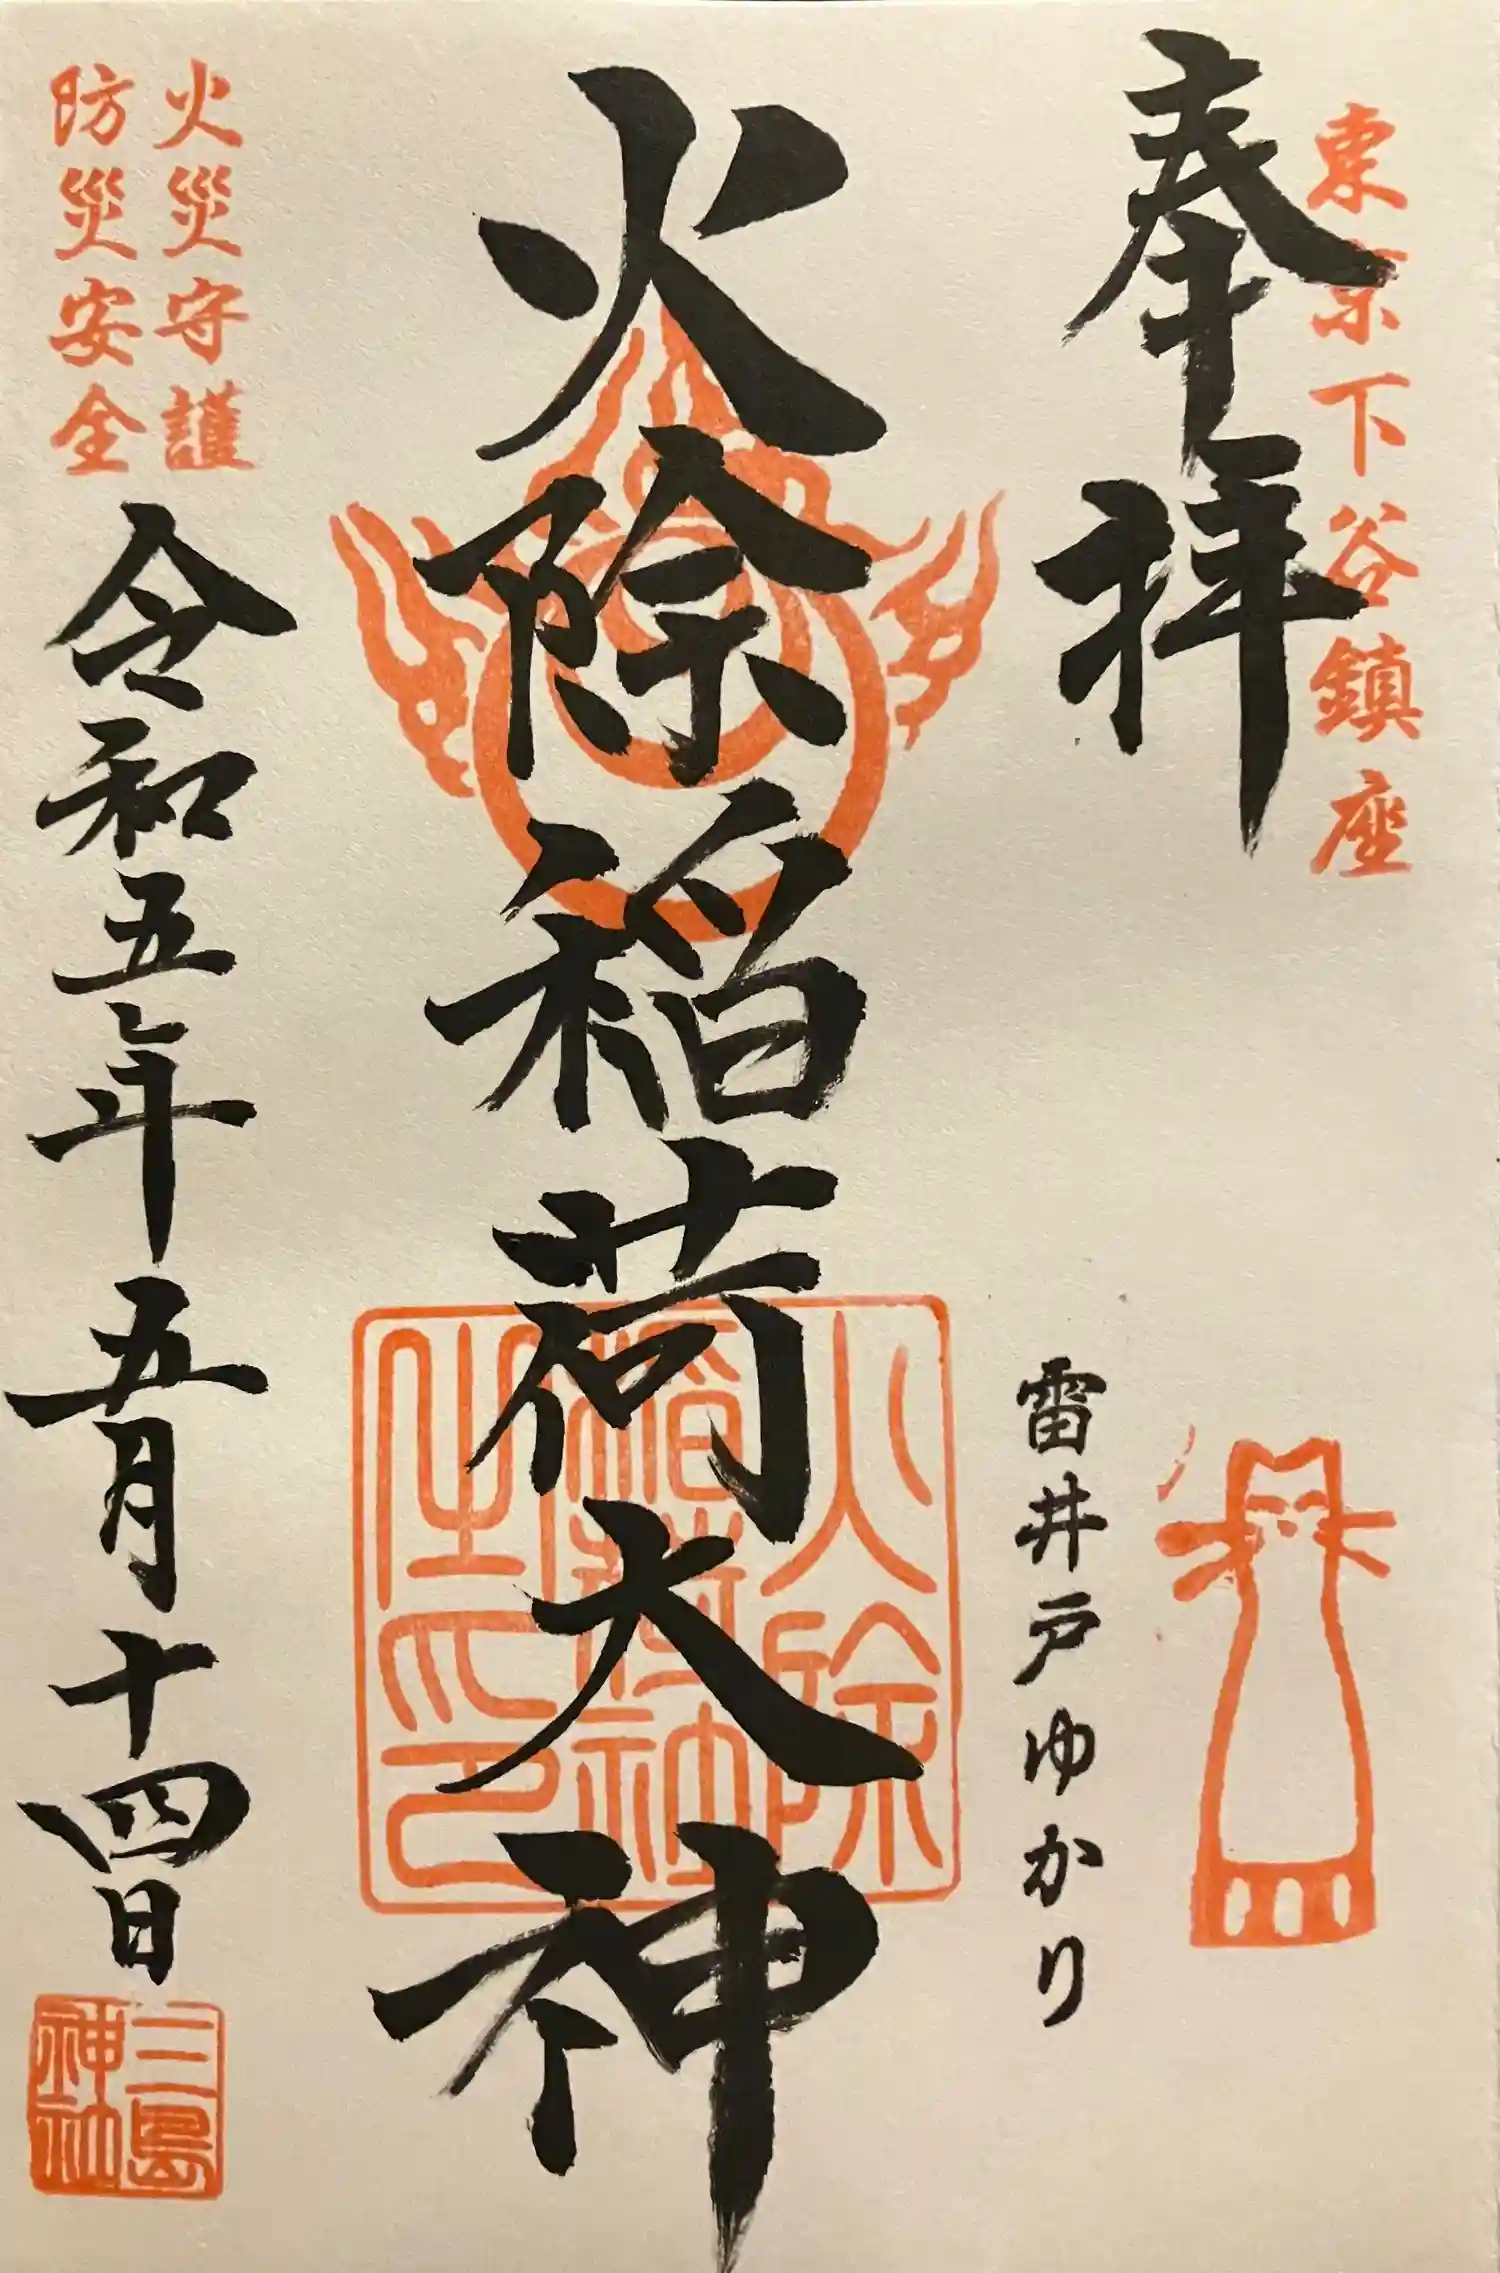 東京下谷鎮座
奉拝
雷井戸ゆかり
火除稲荷大神
火除
稲荷社
之印
火災守護
防災安全
令和五年五月十四日
三島
神社